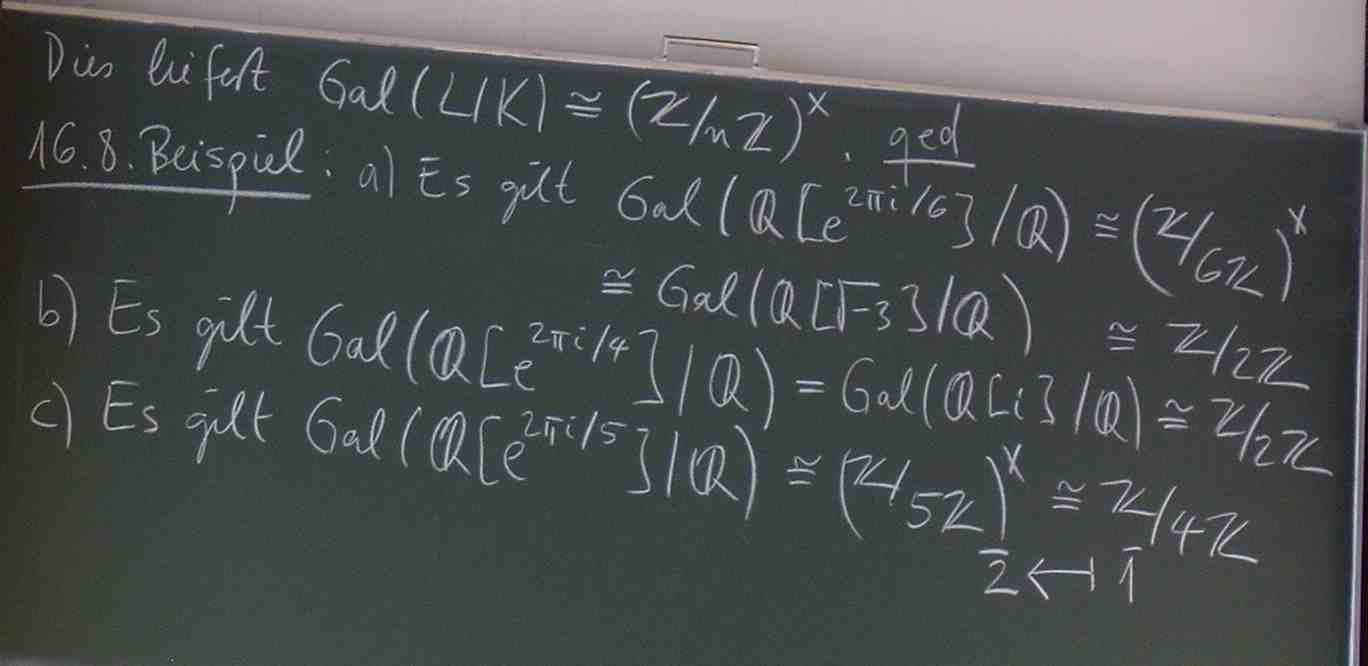 Dies liefert Gal(L/K) ≅ (ℤ/nℤ)^×. qed
16.8. Beispiel: a) Es gilt Gal(ℚ[e^{2πi/6}]/ℚ) ≅ (ℤ/6ℤ)^×
≅ Gal(ℚ[√-3]/ℚ) ≅ ℤ/2ℤ
b) Es gilt Gal(ℚ[e^{2πi/4}]/ℚ) = Gal(ℚ[i]/ℚ) ≅ ℤ/2ℤ
c) Es gilt Gal(ℚ[e^{2πi/5}]/ℚ) ≅ (ℤ/5ℤ)^× ≅ ℤ/4ℤ
2̄ ↤ 1̄